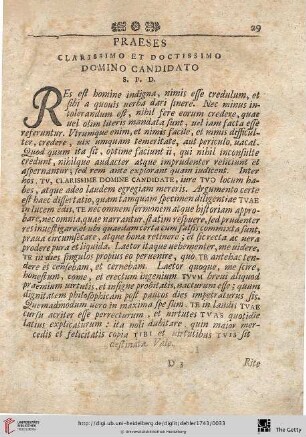 29
PRAESES
CLARISSIMO ET DOCTISSIMO
DOMINO CANDIDATO
S. P. D.
RES est homine indigna, nimis esse credulum, et
sibi a quouis verba dari sinere. Nec minus in-
tolerandum est, nihil fere eorum credere, quae
vel olim literis mandata sunt, vel iam facta esse
referuntur. Vtrumque enim, et nimis facile, et nimis difficul-
ter, credere, vix umquam temeritate, aut periculo, vacat.
Quod quum ita sit, optime faciunt ii, qui nihil inconsulte
credunt, nihilque audacter atque imprudenter reiiciunt et
aspernantur, sed rem ante explorant quam iudicent. Inter
hos, TV, CLARISSIME DOMINE CANDIDATE, iure TVO locum ha-
bes, atque adeo laudem egregiam mereris. Argumento certe
est haec dissertatio, quam tamquam specimen diligentiae TVAE
in lucem edis, TE nec omnem sermonem atque historiam appro-
bare, nec omnia, quae narrantur, statim respuere, sed prudenter
res inuestigare, et ubi quaedam certa cum falsis commixta sunt,
praua circumsecare, atque bona retinere; et sic recta ac vera
prodere pura et liquida. Laetor itaque vehementer, me videre,
TE in dies singulos propius eo peruenire, quo TE antehac ten-
dere et cernebam, et cernebam. Laetor quoque, me scire,
honestum, bone, et erectum ingenium TVVM foresi aliquod
praemium virtutis, et insigne probitatis, nacturum esse; quum
dignitatem philosophicam post paucos dies impetraturus sis.
Quemadmodum vero in maxima spe sum, TE in laudis TVAE
cursu acriter esse perrecturum, et virtutes TVAS quotidie
latius explicaturum: ita noli dubitare, quin maior mer-
cedis et felicitatis copia TIBI et virtutibus TVIS sit
destinata. Vale.
D 3
Rite
http://digi.ub.uni-heidelberg.de/diglit/dehler1743/0033
© Universitätsbibliothek Heidelberg
The Getty